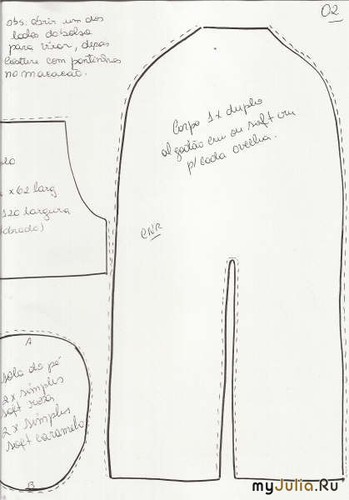 02
obs: abrir um dos
lados do bolso
para virar, depois
costure com pontinhos
no macacão.
Corpo 1x duplo
algodão cru ou soft cru
p/ cada ovelha.
x 62 larg
120 largura
CNR
A
sola do pé
2x simples
soft rosa
2x simples
soft caramelo
B
myJulia.Ru